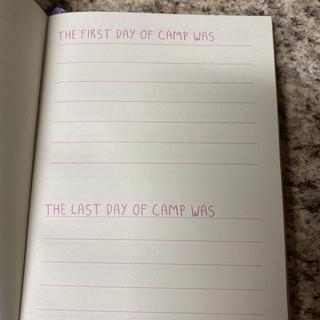 THE FIRST DAY OF CAMP WAS
THE LAST DAY OF CAMP WAS